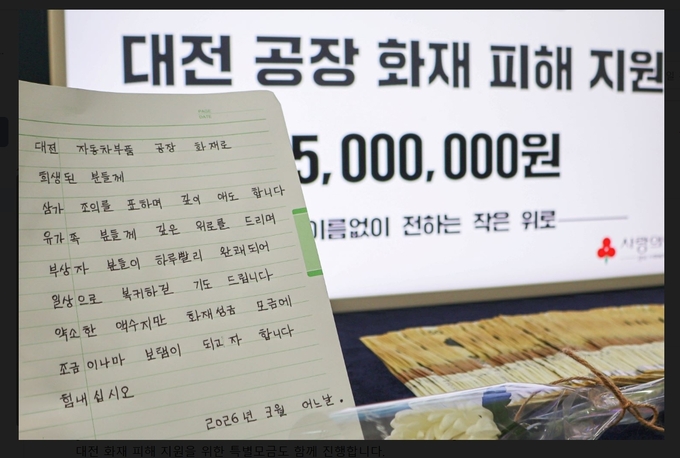 대전 공장 화재 피해 지원
5,000,000원
이름없이 전하는 작은 위로
사랑의
대전 자동차부품 공장 화재로
희생된 분들께
삼가 조의를 표하며 깊이 애도 합니다
유가족 분들께 깊은 위로를 드리며
부상자 분들이 하루빨리 완쾌되어
일상으로 복귀하길 기도 드립니다
약소한 액수지만 화재성금 모금에
조금이나마 보탬이 되고자 합니다
힘내십시오
2026년 3월 어느날.
대전 화재 피해 지원을 위한 특별모금도 함께 진행합니다.